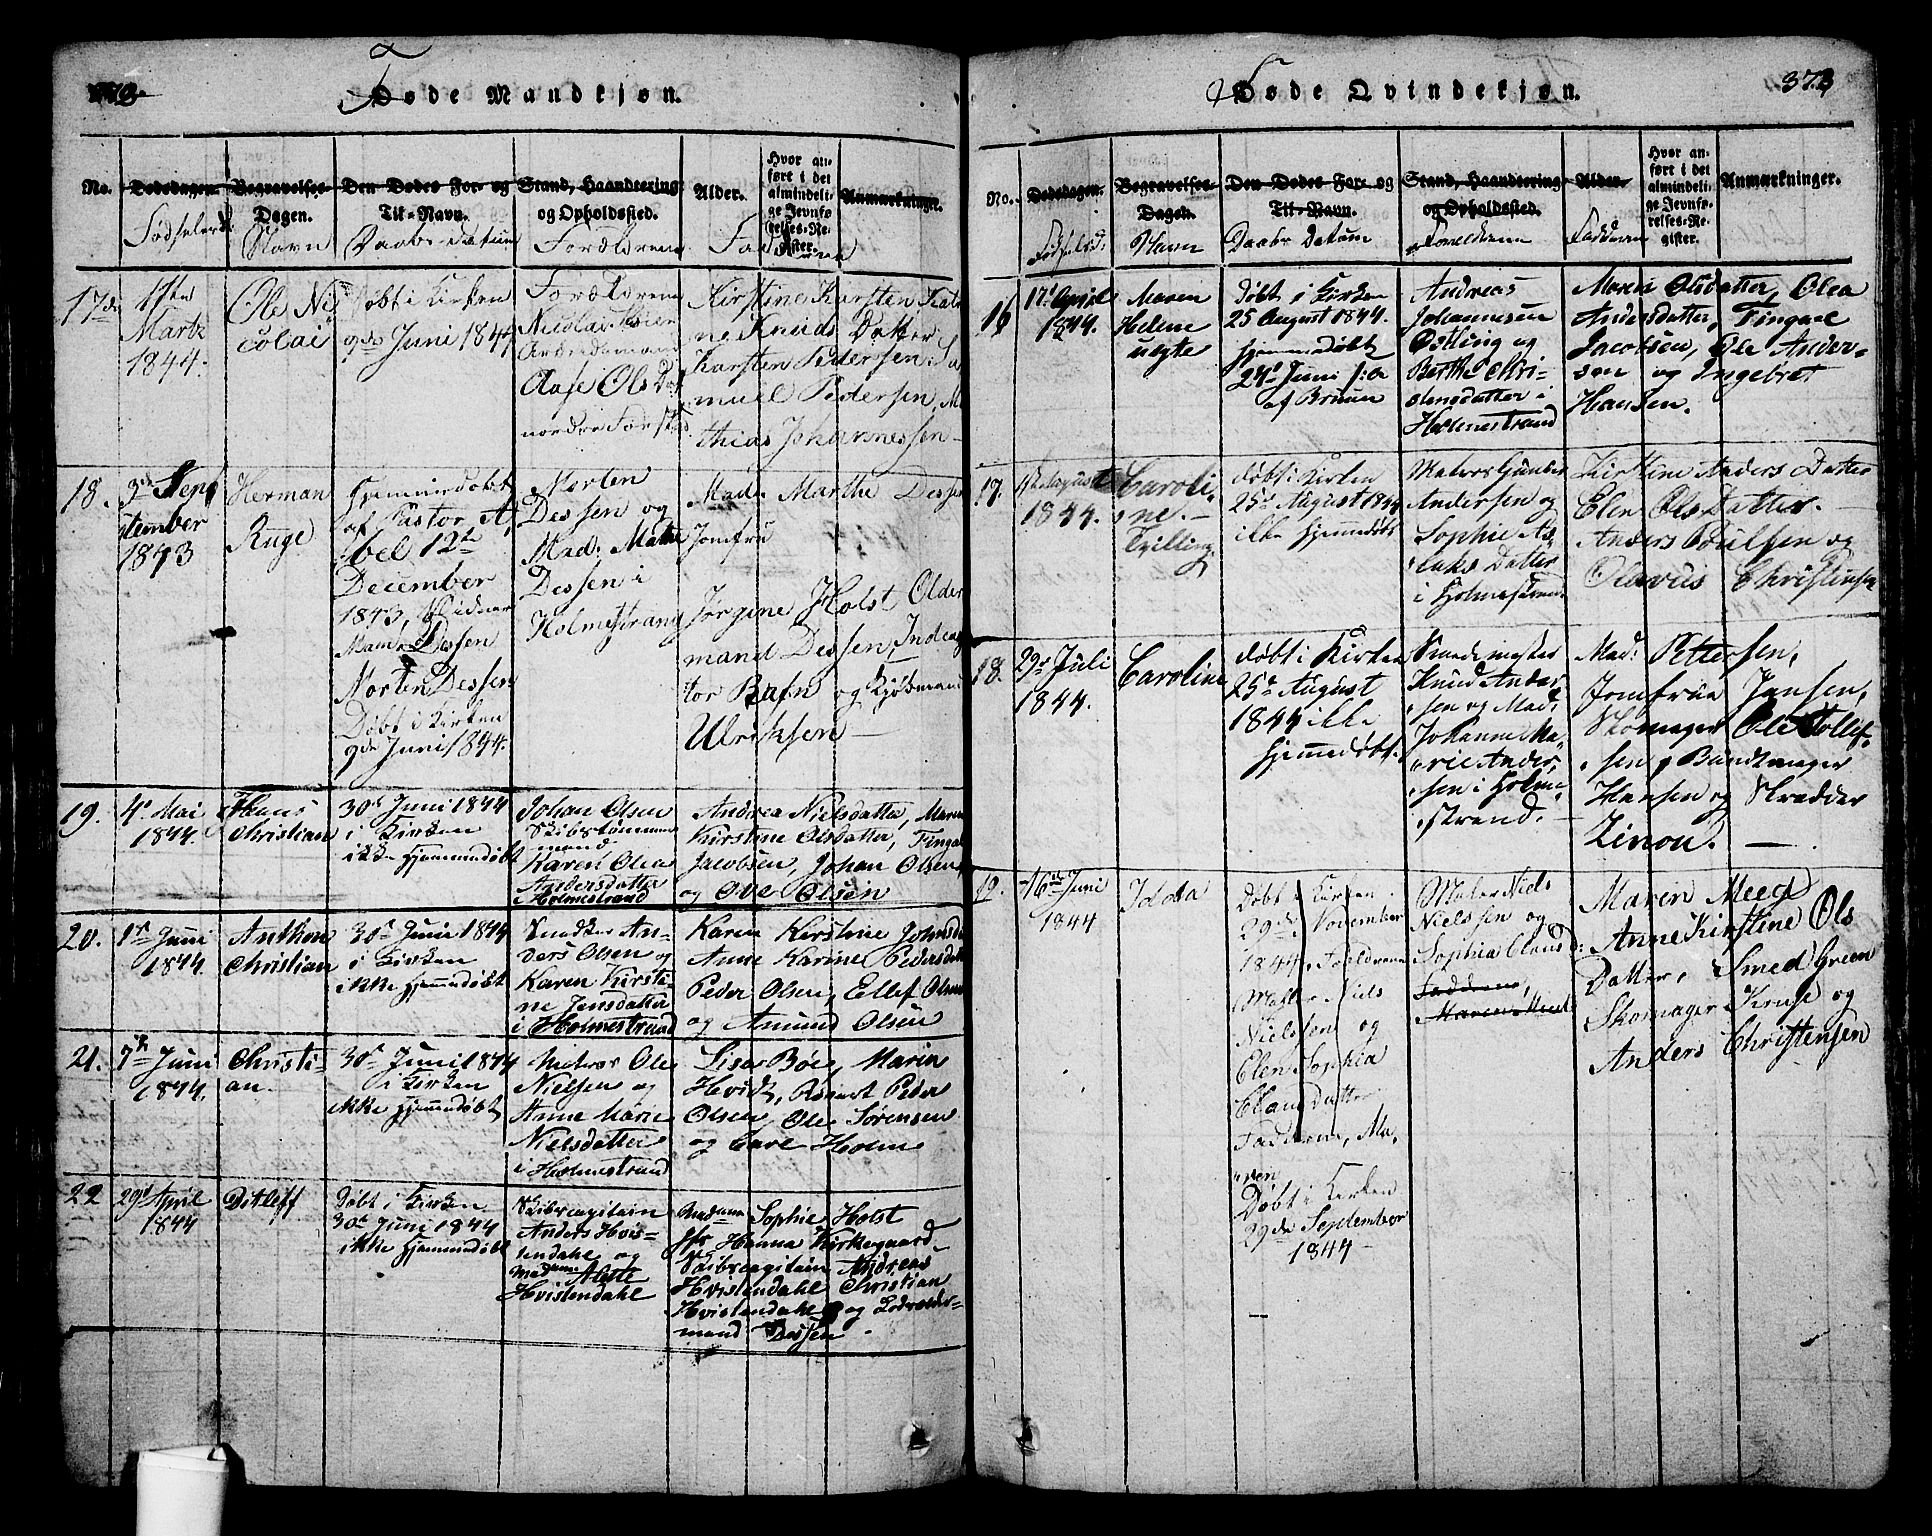 Døde Mandkjøn.
No.
Dødsdagen.
Begravelses-
Dagen.
Den Dødes For- og
Til-Navn.
Stand, Haandtering
og Opholdssted.
Alder.
Hvor an-
ført i det
almindeli-
ge Jevnfø-
relses-Re-
gister.
Anmærkninger.
Navn
Daabs-Datum
Forældrene
17de
11te
Martz
1844.
Ole Ni
colai
Døbt i Kirken
9de Juni 1844
Forældrene
Nicolai
Aase Ols Dat
nordre
Kirstine Karsten
ne Knuds Datter
Karsten Pedersen, Sa
muel Pedersen, Ma
thias Johannessen
18.
3die Sept
tember
1843
Herman
Ruge
Hjemmedøbt
af Pastor A
bel 12te
December
1843, Vidner
Dessen
Morten Dessen
Døbt i Kirken
9de Juni 1844.
Morten
Dessen og
Mad:
Dessen i
Holmestrand
Mad. Marthe Dessen
Jomfru
Jørgine Holst Older
mand Dessen,
tor Rafn og Kjøbmand
Ulriksen
19.
4de Mai
1844.
Hans
Christian
30te Juni 1844
i Kirken
ikke Hjemmedøbt
Johan Olsen
mand
Karen Olea
Andersdatter
i Holmestrand
Andrea Nielsdatter, Maren
Kirstine Olsdatter, Fingal
Jacobsen, Johan Olsen
og Ove Olsen
20.
1te Juni
1844
Anthon
Christian
30te Juni 1844
i Kirken
ikke Hjemmedøbt
An-
ders Olsen og
Karen Kirsti-
ne Jensdatter
i Holmestrand
Karen Kirstine
Anne Karine Pedersdatter
Peder Olsen, Ellef Olsen
og Amund Olsen
21.
7de Juni
1844.
Christi-
an.
30te Juni 1844
i Kirken
ikke Hjemmedøbt
Matros Ole
Nielsen og
Anne Marie
Nielsdatter
i Holmestrand
Lisa Bøe, Maria
Hvidt, Peder
Olsen, Ole Sørensen
og Carl Holm
22
29de April
1844
Ditleff
Døbt i Kirken
30te Juni 1844
ikke Hjemmedøbt
Skibscapitain
Anders Hvis-
tendahl og
Madame Alette
Hvistendahl
Madame Sophie Holst
Hanna Kirkegaard
Skibscapitain Andreas
Hvistendahl Christian
Hvistendahl og
mand Dessen
Døde Qvindekjøn.
373
No.
Dødsdagen.
Begravelses-
Dagen.
Den Dødes For- og
Til-Navn.
Stand, Haandtering
og Opholdssted.
Alder.
Hvor an-
ført i det
almindeli-
ge Jevnfø-
relses-Re-
gister.
Anmærkninger.
Navn
Daabs Datum
Forældrene
Fadderne
16
17de April
1844.
Maren
Helene
uegte
Døbt i Kirken
25 August 1844.
Hjemmedøbt
24de Juni
af Bruun
Andreas
Johannesen
Østling og
Berthe Chri-
stensdatter i
Holmestrand
Maren Olsdatter, Olea
Andersdatter, Fingal
Jacobsen, Ole Ander-
sen og Ingebret
Hansen.
17.
August
1844.
Caroli-
ne.
Tvilling
Døbt i Kirken
25de August 1844
ikke Hjemmedøbt
Matros Gunder
Andersen og
Sophie As-
laks Datter
i Holmestrand
Kirstine Anders Datter
Elen Ols Datter.
Anders Poulsen og
Olavus Christensen
18.
29de Juli
1844.
Caroline
Døbt i Kirken
25de August
1844 ikke
Hjemmedøbt.
Knud Ander
sen og Mad.
Johanne Ma-
rie Ander
sen i Holme-
strand.
Mad: Pettersen,
Jomfrue Jansen,
Skomager Ole Tollef-
sen, Bundtmager
Hansen og Skrædder
Zinou.
19.
16de Juni
1844
Idda
Døbt i Kirken
29de November
1844, Forældrene
Niels
Nielsen og
Elen Sophia
Clausdatter
Fadderne, Ma-
ren
Døbt i Kirken
29de September
1844
Maler Niels
Nielssen og
Sophia Clausd:
Fadderne,
Maren Meed
Maren Meed
Anne Kirstine Ols
Datter, Smed Green
Skomager Kruse og
Anders Christensen